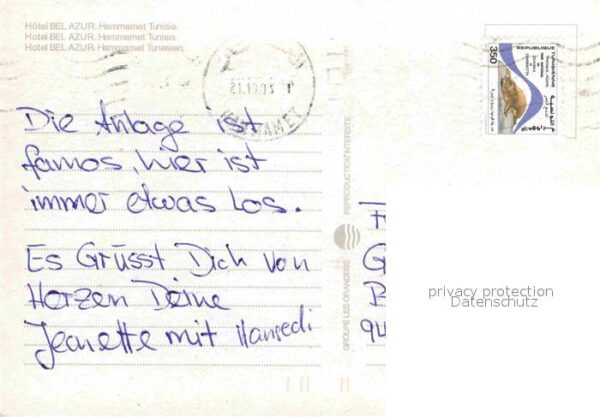 Hôtel BEL AZUR. Hammamet Tunisie.
Hotel BEL AZUR. Hammamet Tunisia.
Hotel BEL AZUR. Hammamet Tunesien.
21.10.93
HAMMAMET
350
REPUBLIQUE
TUNISIENNE
Die Anlage ist
famos, hier ist
immer etwas Los.
Es Grüsst Dich von
Herzen Deine
Jeanette mit Hansedi
GROUPE LES ORANGERS
REPRODUCTION INTERDITE
F
G
B
94
privacy protection
Datenschutz